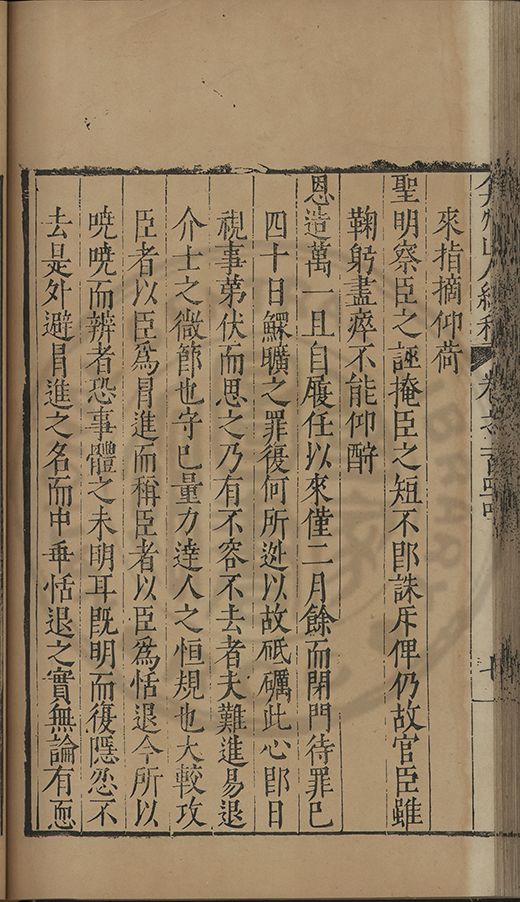 來指摘仰荷
聖明察臣之誣掩臣之短不卽誅斥俾仍故官臣雖
鞠躬盡瘁不能仰酧
恩造萬一且自履任以來僅二月餘而閉門待罪巳
四十日鰥曠之罪復何所逃以故砥礪此心卽日
視事第伏而思之乃有不容不去者夫難進易退
介士之微節也守巳量力達人之恒規也大較攻
臣者以臣爲冒進而稱臣者以臣爲恬退今所以
嘵嘵而辨者恐事體之未明耳旣明而復隱忍不
去是外避冒進之名而中乖恬退之實無論有靦